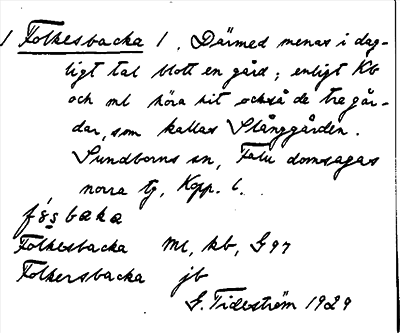 1 Folkesbacka 1. Därmed menas i dag-
ligt tal blott en gård; enligt Kb
och ml höra hit också de tre går-
dar, som kallas Stånggården.
Sundborns sn, Falu domsagas
norra tg, Kopp. l.
Folkesbacka ml, kb, G 97
Folkersbacka jb
G. Tideström 1929